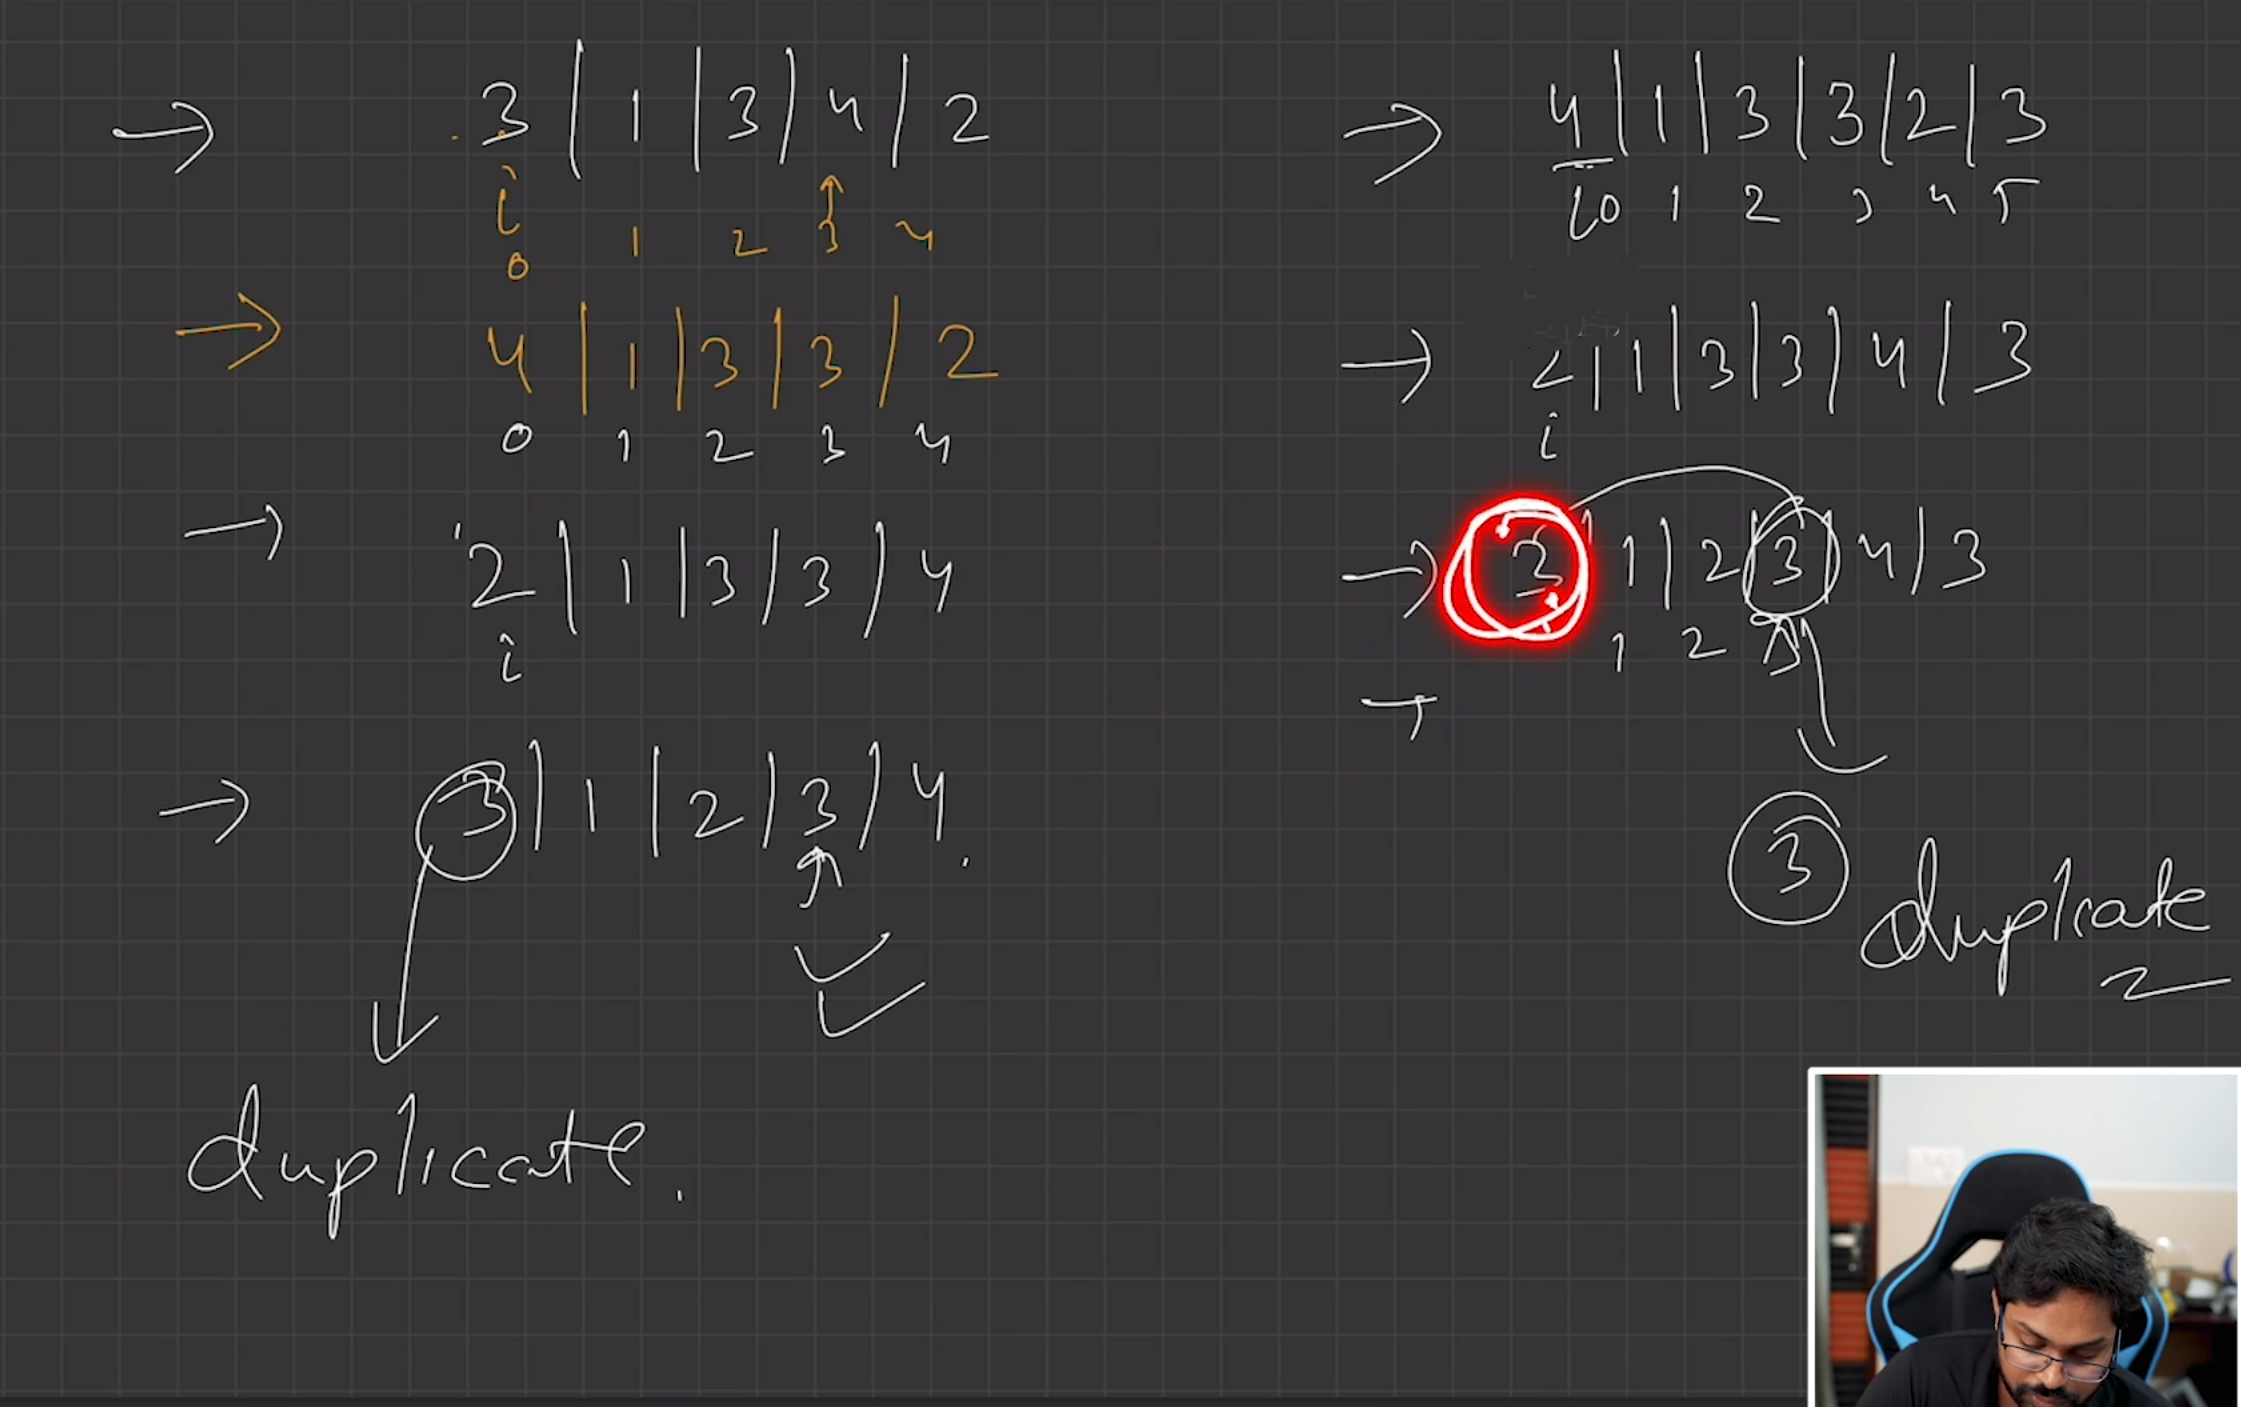 → 3 | 1 | 3 | 4 | 2
i ↑
0 1 2 3 4
→ 4 | 1 | 3 | 3 | 2
0 1 2 3 4
→ 2 | 1 | 3 | 3 | 4
i
→ 3 | 1 | 2 | 3 | 4
duplicate.
→ 4 | 1 | 3 | 3 | 2 | 3
i 0 1 2 3 4 5
→ 2 | 1 | 3 | 3 | 4 | 3
i
→ 3 | 1 | 2 | 3 | 4 | 3
1 2 3
→
3 duplicate